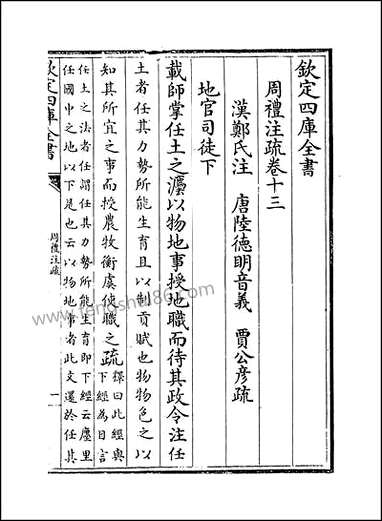 欽定四庫全書
周禮注疏卷十三
漢鄭氏注 唐陸德明音義 賈公彦疏
地官司徒下
載師掌任土之灋以物地事授地職而待其政令注任
土者任其力勢所能生育且以制貢賦也物物色之以
知其所宜之事而授農牧衡虞使職之疏釋曰此經與
下經為目言
任土之法者任謂任其力勢所能生育即下經云廛里
任國中之地以下是也云以物地事者此文還於任其
欽定四庫全書
周禮注疏
一
www.fengshui86.com